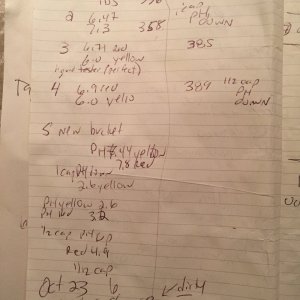 2 6.47 1 cap PH DOWN
7.3 358
3 6.71 red 385
6.0 yellow
(perfect)
4 6.9 red 389 1/2 cap PH DOWN
6.0 yello
5 new bucket
7.8 Red
2.6 yellow
PH yellow 2.6
PH red 3.2
1/2 cap PH up
Red 4.9
1 1/2 cap
Oct 23 6 dirty